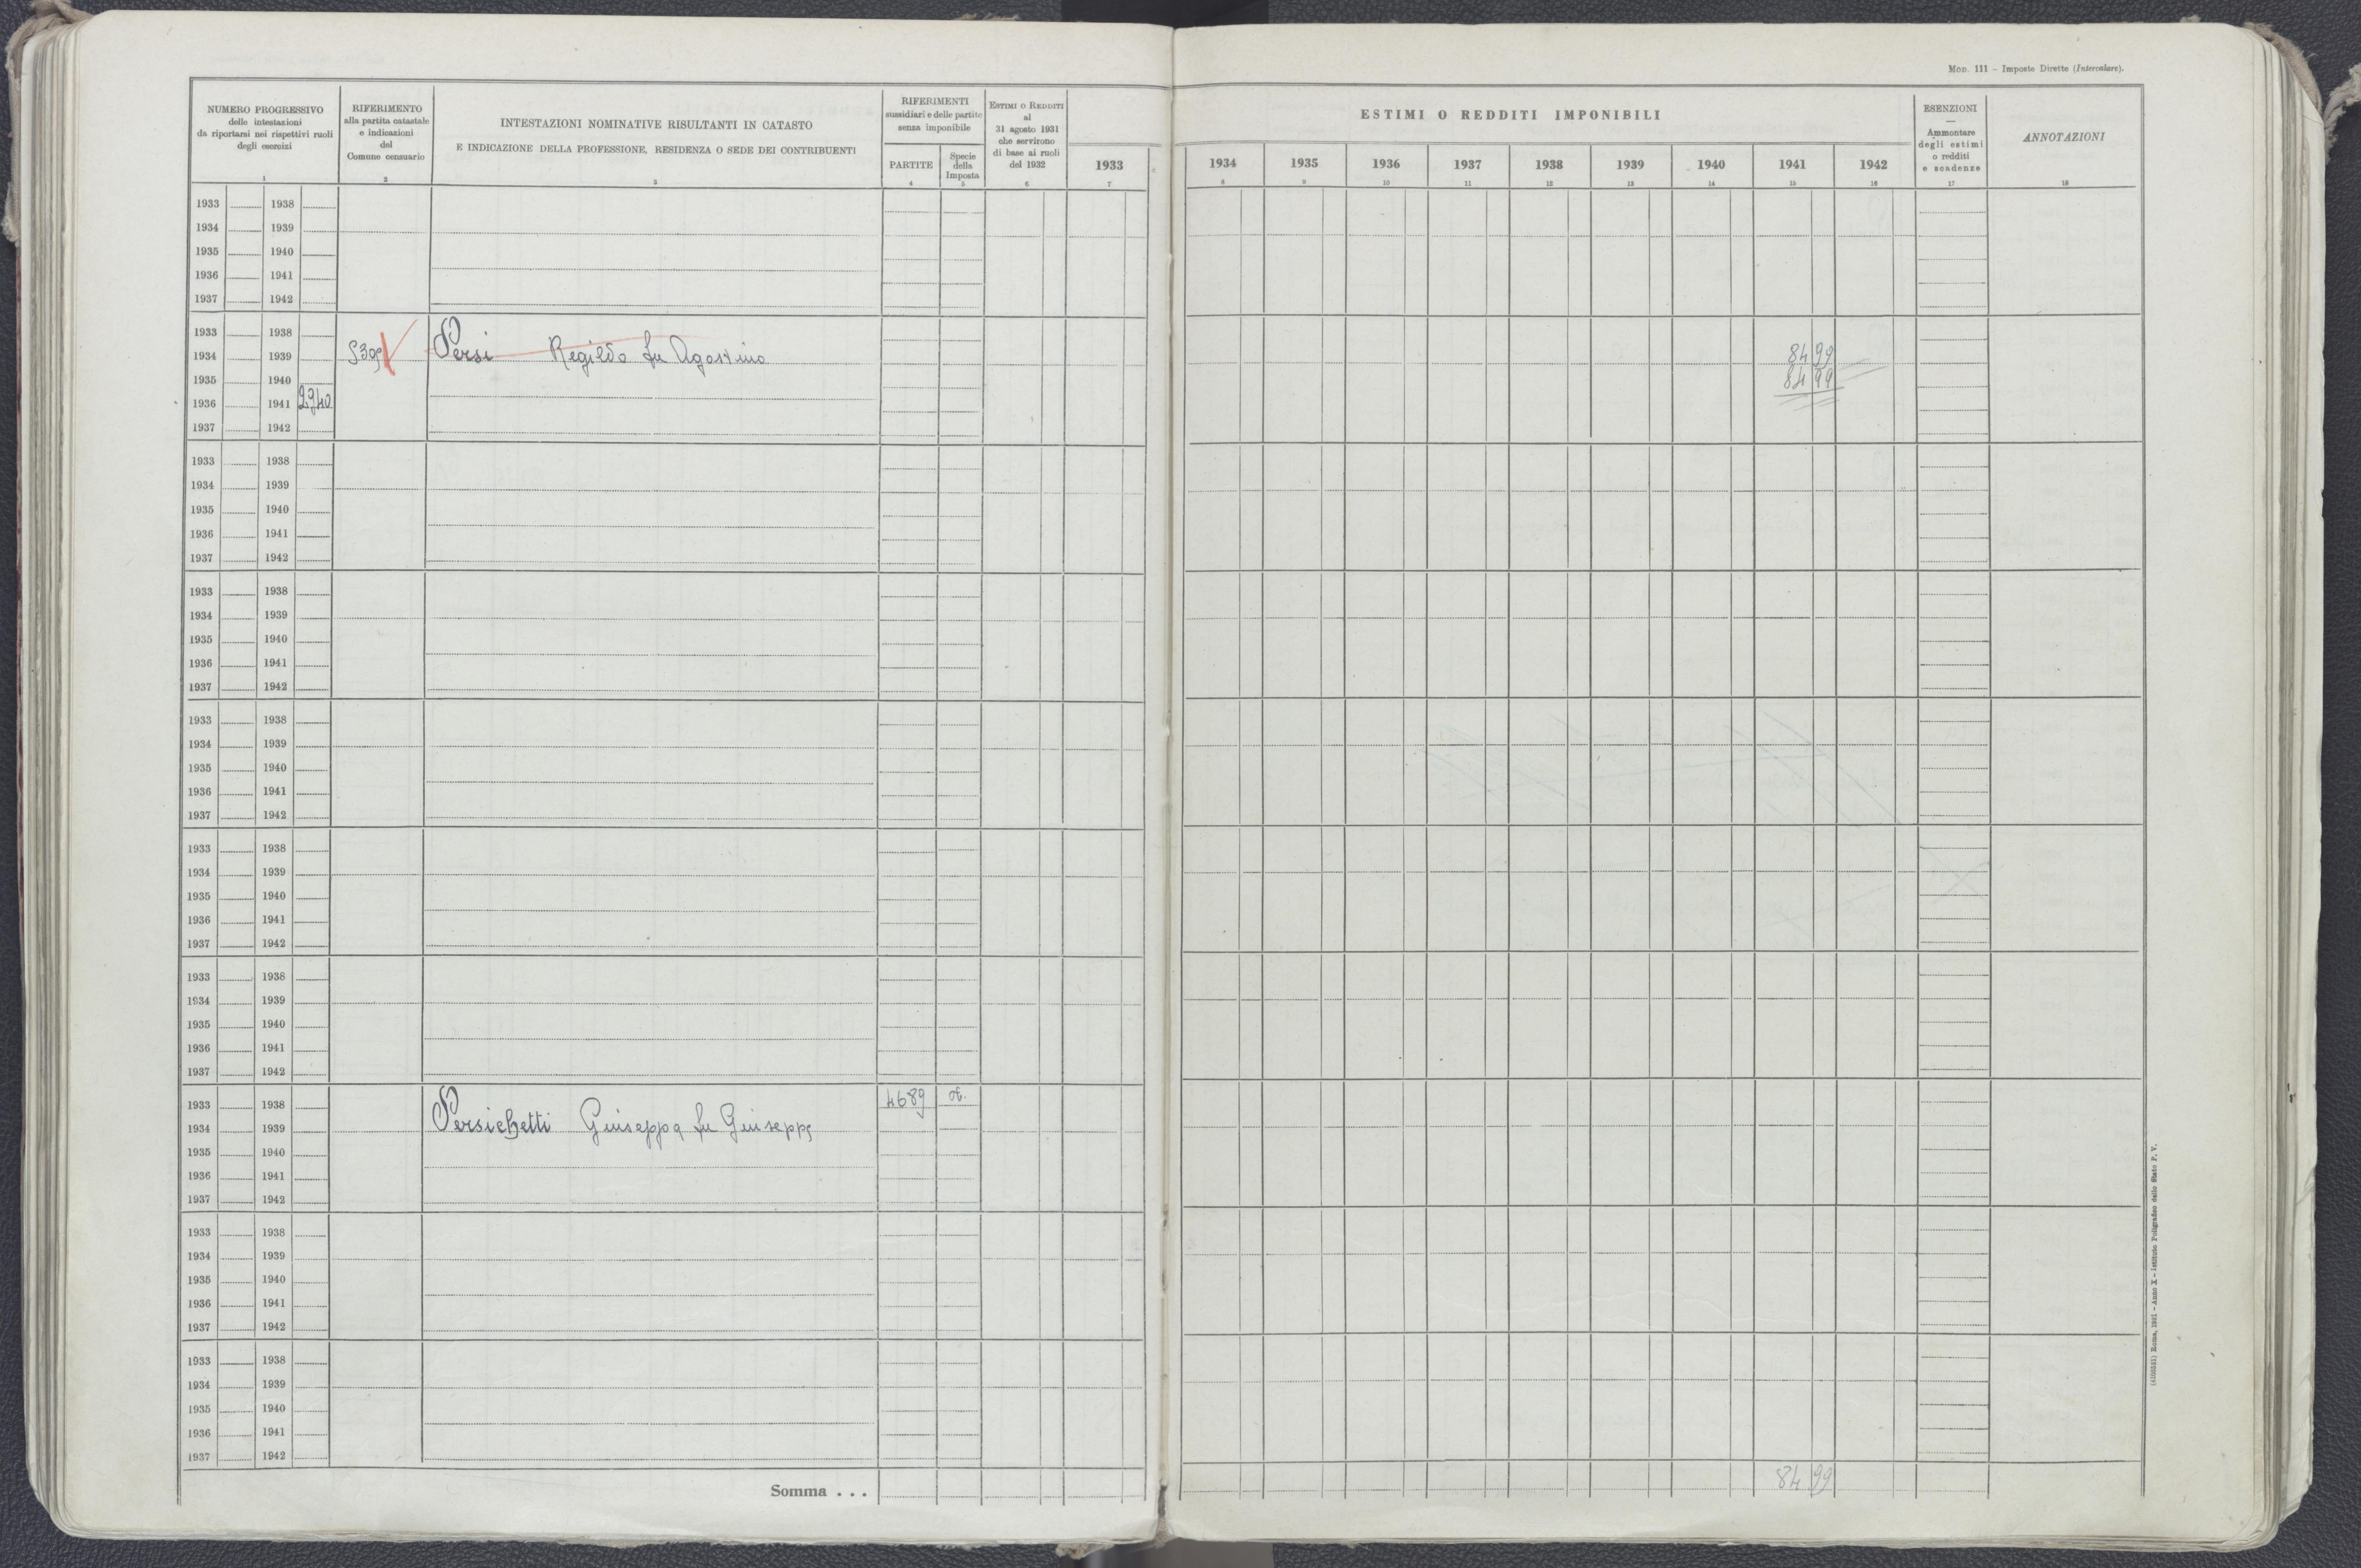 MOD. 111 – Imposte Dirette (Intercalare).
NUMERO PROGRESSIVO
delle intestazioni
da riportarsi nei rispettivi ruoli
degli esercizi
1
RIFERIMENTO
alla partita catastale
e indicazioni
del
Comune censuario
2
INTESTAZIONI NOMINATIVE RISULTANTI IN CATASTO
E INDICAZIONE DELLA PROFESSIONE, RESIDENZA O SEDE DEI CONTRIBUENTI
3
RIFERIMENTI
sussidiari e delle partite
senza imponibile
PARTITE
4
Specie
della
Imposta
5
ESTIMI O REDDITI
al
31 agosto 1931
che servirono
di base ai ruoli
del 1932
6
1933
7
ESTIMI O REDDITI IMPONIBILI
1934 1935 1936 1937 1938 1939 1940 1941 1942
8 9 10 11 12 13 14 15 16
ESENZIONI
—
Ammontare
degli estimi
o redditi
e scadenze
17
ANNOTAZIONI
18
1933 1938
1934 1939
1935 1940
1936 1941
1937 1942
1933 1938
1934 1939 Persi Regildo fu Agostino 84 99
1935 1940 84 99
1936 1941 2940
1937 1942
1933 1938
1934 1939
1935 1940
1936 1941
1937 1942
1933 1938
1934 1939
1935 1940
1936 1941
1937 1942
1933 1938
1934 1939
1935 1940
1936 1941
1937 1942
1933 1938
1934 1939
1935 1940
1936 1941
1937 1942
1933 1938
1934 1939
1935 1940
1936 1941
1937 1942
1933 1938 4689
1934 1939 Persichetti Giuseppa fu Giuseppe
1935 1940
1936 1941
1937 1942
1933 1938
1934 1939
1935 1940
1936 1941
1937 1942
1933 1938
1934 1939
1935 1940
1936 1941
1937 1942
Somma . . . 84 99
Roma, 1931 – Anno X – Istituto Poligrafico dello Stato P. V.